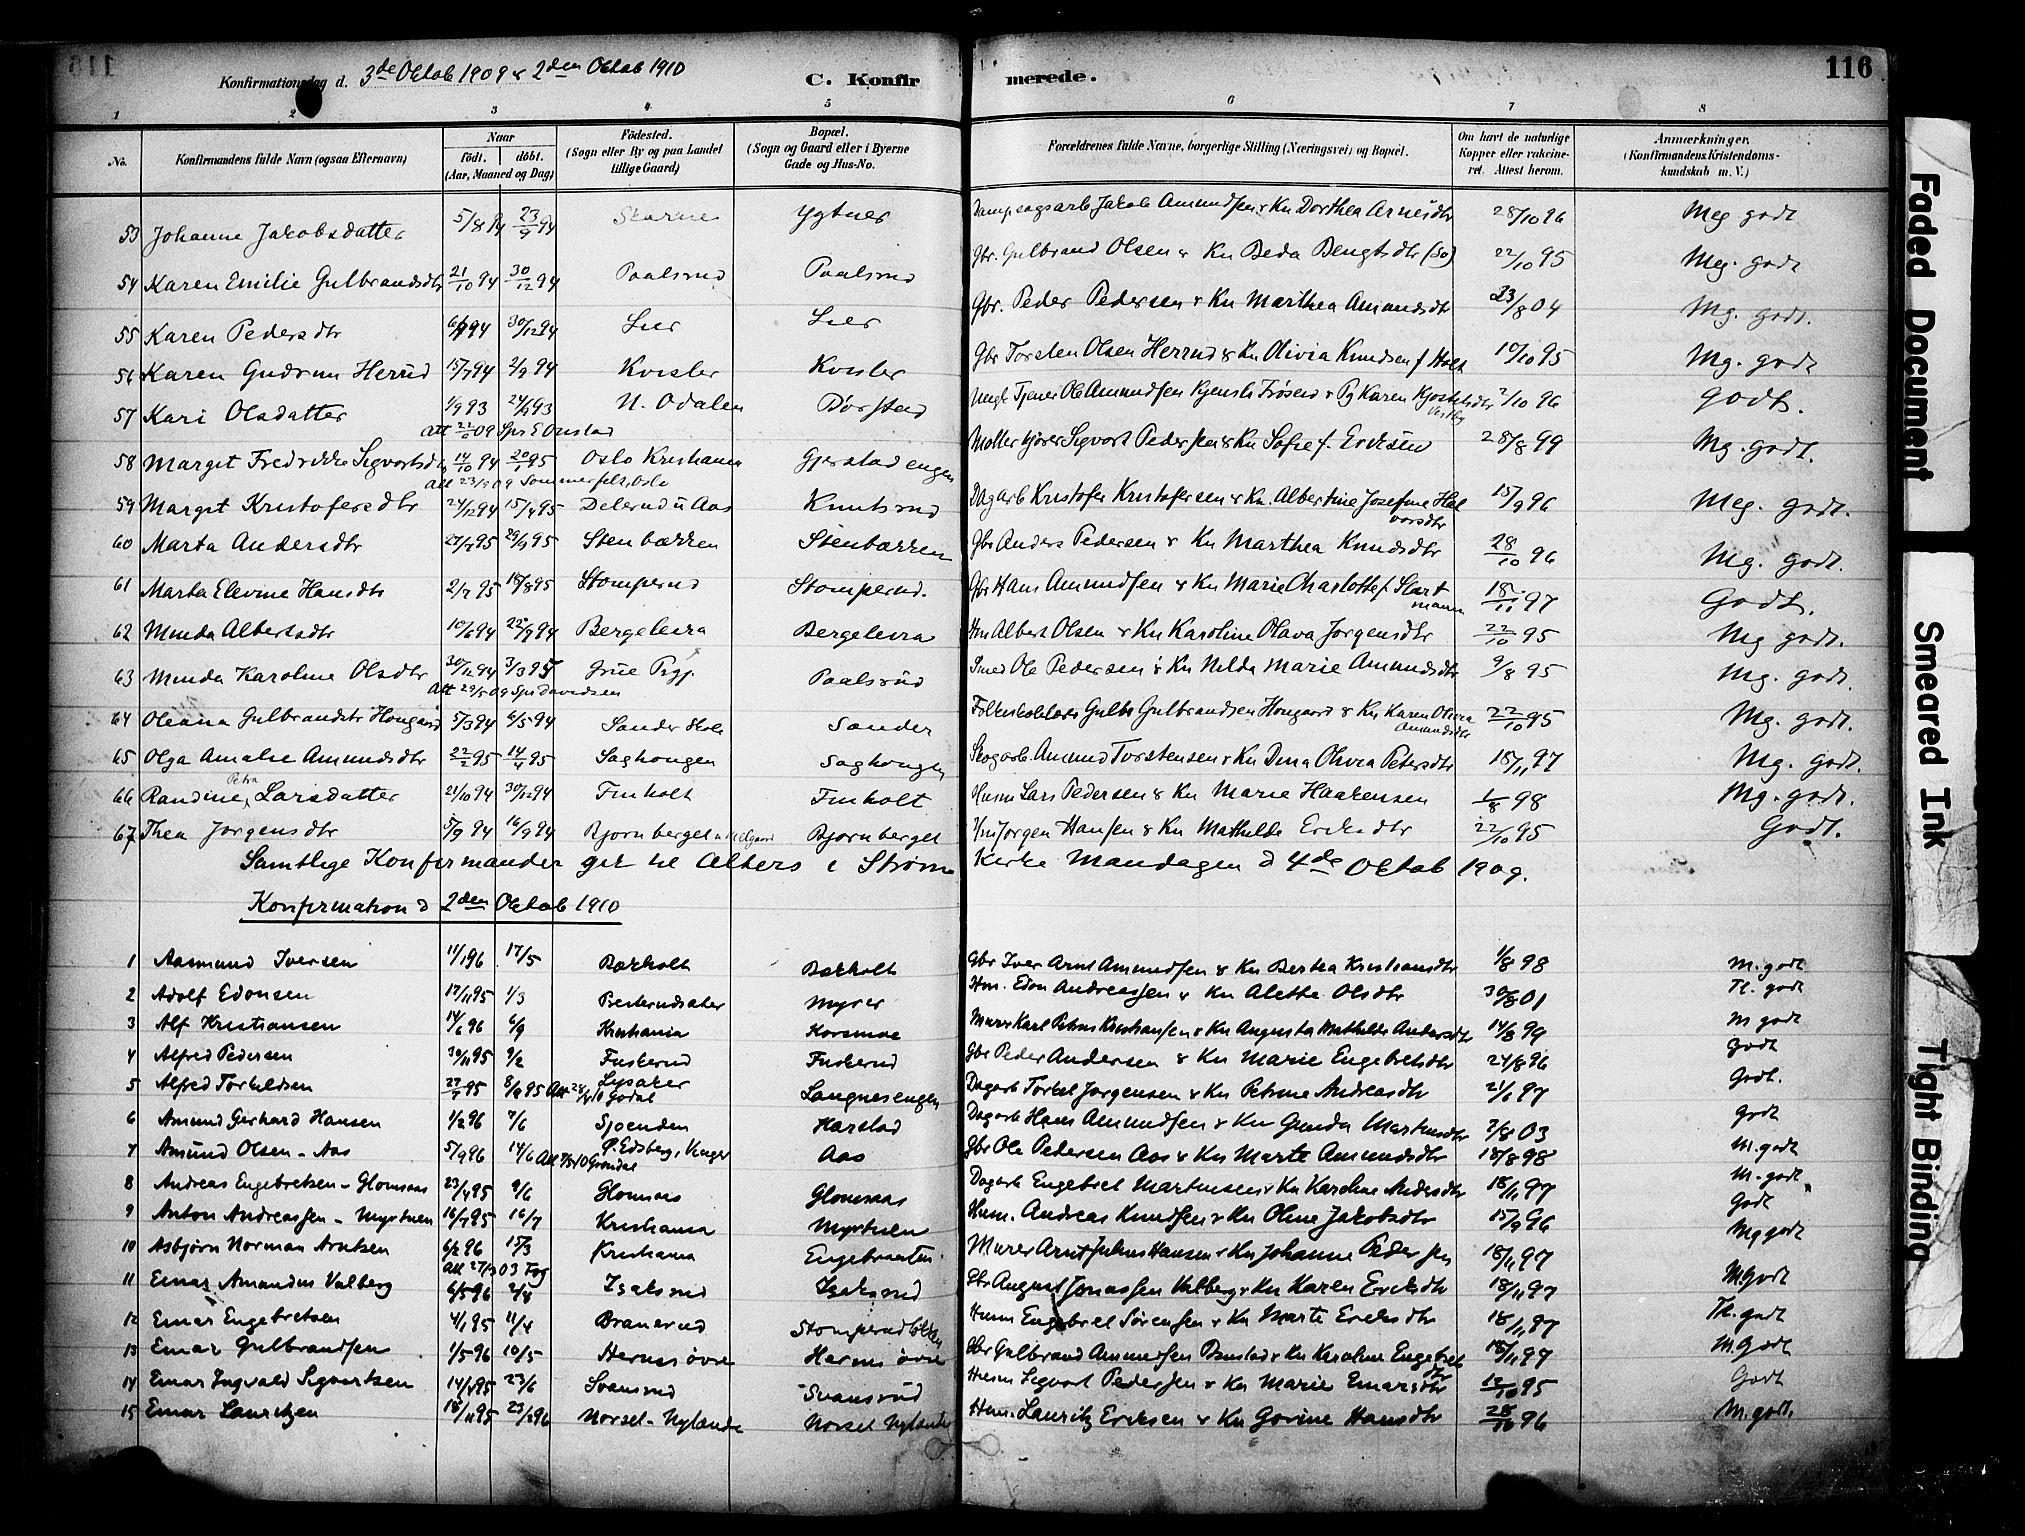 Konfirmationsdag d. 3de Oktob 1909 & 2den Oktob 1910 C. Konfirmerede. 116
1 2 3 4 5 6 7 8
No. Konfirmandens fulde Navn (ogsaa Efternavn) Naar født. døbt. (Aar, Maaned og Dag) Fødested. (Sogn eller By og paa Landet tillige Gaard) Bopæl. (Sogn og Gaard eller i Byerne Gade og Hus-No. Forældrenes fulde Navne, borgerlige Stilling (Næringsvei) og Bopæl. Om havt de naturlige Kopper eller vakcineret. Attest herom. Anmærkninger. (Konfirmandens Kristendomskundskab m. V.)
53 Johanne Jakobsdatter 5/8 94 23/9 94 Jakob Amundsen & Kn Dorthea Arnesdtr 28/10 96 Meg godt
54 Karen Emilie Gulbrandsdtr 21/10 94 30/12 94 Paalsrud Paalsrud Gbr. Gulbrand Olsen & Kn Beda Bengtsdtr 22/10 95 Meg. godt
55 Karen Pedersdtr 30/12 94 Lier Lier Gbr. Peder Pedersen & Kn Marthea Amundsdtr 23/8 04 Mg. godt.
56 Karen Gudrun Herud 15/7 94 2/9 94 Kvisler Kvisler Gbr Torsten Olsen Herrud & Kn Olivia Knudsen f Holt 10/10 95 Mg. godt
57 Kari Olsdatter 1/9 93 24/9 93 N. Odalen Børstad Ole Amundsen & Pg Karen 2/10 96 Godt.
58 Margit Fredrikke Sigvartsdtr 14/10 94 20/1 95 Oslo Kristiania Gjerstadengen Sigvart Pedersen & Kn Sofie f. Eriksen 28/8 99 Mg. godt.
Att 23/9 09 Sommerfelt, Oslo
59 Margit Kristofersdtr 24/12 94 15/4 95 Delerud u Aas Knutsrud Dagarb Kristofer Kristofersen & Kn. Albertine Josefine Halvorsdtr 15/9 96 Meg. godt.
60 Marta Andersdtr 27/7 95 29/9 95 Stenbækken Stenbækken Gbr Anders Pedersen & Kn Marthea Knudsdtr 28/10 96 Mg. godt.
61 Marta Elevine Hansdtr 2/7 95 18/8 95 Stomperud Stomperud. Gbr Hans Amundsen & Kn Marie Charlotte f Slartmann 18/11 97 Godt.
62 Minda Albertsdtr 10/6 94 22/7 94 Bergeleira Bergeleira Hm Albert Olsen & Kn Karoline Olava Jorgensdtr 22/10 95 Mg godt.
63 Minda Karoline Olsdtr 30/12 94 3/3 95 Grue Pgj. Paalsrud Smed Ole Pedersen & Kn Hilda Marie Amundsdtr 9/8 95 Mg. godt.
Att 29/5 09 Spr Davidsen
64 Oleana Gulbrandsdtr Hougard 5/3 94 6/5 94 Sander Skole Sander Gulbr Gulbrandsen Hougard & Kn Karen Olivia Amundsdtr 22/10 95 Mg. godt.
65 Olga Amalie Amundsdtr 22/2 95 14/4 95 Saghougen Saghougen Skogarb. Amund Torstensen & Kn Dina Olivia Petersdtr 18/11 97 Mg. godt.
66 Randine Petra Larsdatter 21/10 94 30/12 94 Finholt Finholt Husm Lars Pedersen & Kn Marie Haakensen 1/8 98 Mg. godt.
67 Thea Jorgensdtr 5/9 94 16/9 94 Bjornberget Bjornberget Hm Jorgen Hansen & Kn Mathilde Eriksdtr 22/10 95 Godt.
Samtlige Konfirmander gik til Alters i Strøm Kirke Mandagen d 4de Oktob 1909.
Konfirmation d 2den Oktob 1910
1 Aasmund Iversen 11/1 96 17/5 Bækholt Bækholt Gbr Iver Arnt Amundsen & Kn Bertea Kristiansdtr 1/8 98 M. godt
2 Adolf Edonsen 17/11 95 1/3 Presterudsæter Myrer Hm. Edon Andreassen & Kn Alette Olsdtr 30/8 01 Tl. godt
3 Alf Kristiansen 14/6 96 6/9 Kristiania Korsmoe Murer Karl Petrus Kristiansen & Kn Augusta Mathilde Andersdtr 14/8 99 M godt
4 Alfred Pedersen 30/11 95 9/2 Fuskerud Fuskerud Gbr Peder Andersen & Kn Marie Engebretsdtr 24/8 96 Godt
5 Alfred Torkeldsen 27/7 95 8/9 95 Lysaker Langnesengen Dagarb Torkel Jorgensen & Kn Petrine Andreasdtr 21/6 97 Godt.
6 Amund Gerhard Hansen 1/2 96 7/6 Sjoenden Harstad Dagarb Hans Amundsen & Kn Gunda Martinsdtr 2/8 03 Godt
7 Amund Olsen - Aas 5/9 96 14/6 Aas Gbr Ole Pedersen Aas & Kn Marte Amundsdtr 18/8 98 M. godt
8 Andreas Engebretsen - Glomsaas 23/4 95 9/6 Glomsaas Glomsaas Dagarb Engebret Martinsen & Kn Karoline Andersdtr 18/11 97 M. godt
9 Anton Andreassen - Myrtuen 16/7 95 16/7 Kristiania Myrtuen Husm. Andreas Knudsen & Kn Oline Jakobsdtr 15/9 96 Godt
10 Asbjørn Norman Arntsen 6/2 96 15/3 Kristiania Engebraaten Murer Arnt Julius Hansen & Kn Johanne Pedersen 18/11 97 Mg godt
11 Einar Amandus Valberg 6/5 96 2/8 Isaksrud Isaksrud Gbr August Jonassen Valberg & Kn Karen Eriksdtr 18/11 97 M. Godt
12 Einar Engebretsen 4/1 95 11/4 Branerud Stomperudlokken Husm Engebret Sørensen & Kn Marte Eriksdtr 18/11 97 Tl. godt
13 Einar Gulbrandsen 1/5 96 10/5 Hernes øvre Hernes øvre Gbr Gulbrand Amundsen & Kn Karoline Engebretsdtr 18/11 97 M. Godt
14 Einar Ingvald Sigvartsen 14/4 95 23/6 Svansrud Svansrud Husm Sigvart Pedersen & Kn Marie Einarsdtr 12/10 95 Godt
15 Einar Lauritzen 18/11 95 23/2 96 Norsel - Nylænde Norsel Nylænde Hm. Lauritz Eriksen & Kn Gorine Hansdtr 28/10 96 M. godt.
Faded Document
Smeared Ink
Tight Binding